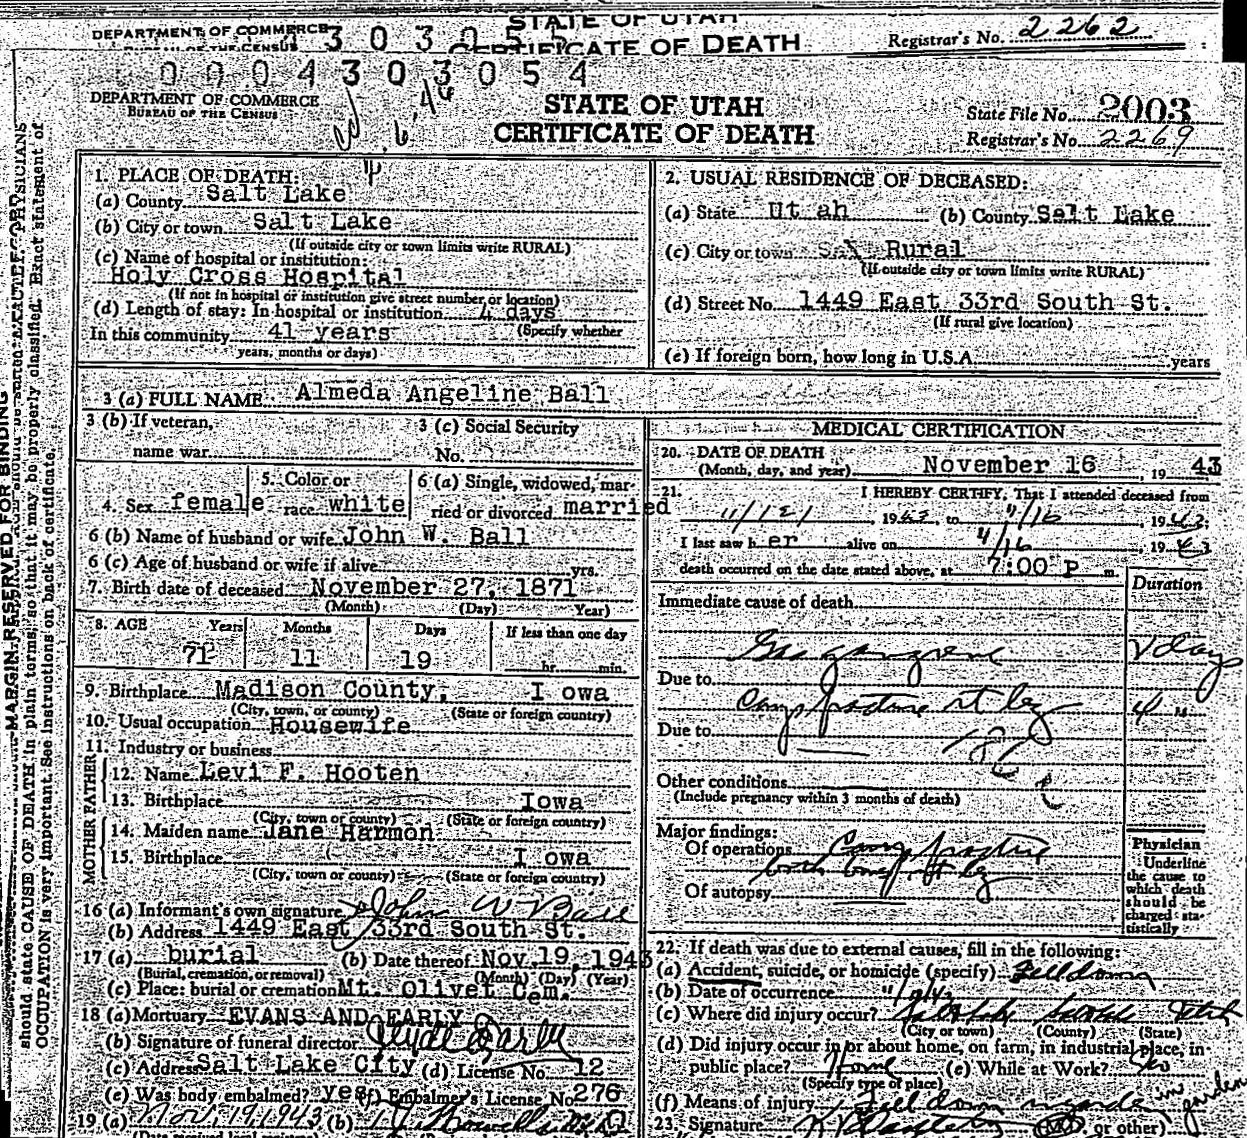 STATE OF UTAH
DEPARTMENT OF COMMERCE 303055 CERTIFICATE OF DEATH Registrar's No. 2262
BUREAU OF THE CENSUS
0004303054
DEPARTMENT OF COMMERCE
BUREAU OF THE CENSUS
STATE OF UTAH
CERTIFICATE OF DEATH
State File No. 2003
Registrar's No. 2269
MARGIN RESERVED FOR BINDING
should state CAUSE OF DEATH in plain terms, so that it may be properly classified. Exact statement of
OCCUPATION is very important. See instructions on back of certificate.
1. PLACE OF DEATH:
(a) County Salt Lake
(b) City or town Salt Lake
(If outside city or town limits write RURAL)
(c) Name of hospital or institution:
Holy Cross Hospital
(If not in hospital or institution give street number or location)
(d) Length of stay: In hospital or institution 4 days
(Specify whether
In this community 41 years
years, months or days)
2. USUAL RESIDENCE OF DECEASED:
(a) State Ut ah (b) County Salt Lake
(c) City or town Rural
(If outside city or town limits write RURAL)
(d) Street No. 1449 East 33rd South St.
(If rural give location)
(e) If foreign born, how long in U.S.A. years
3 (a) FULL NAME Almeda Angeline Ball
3 (b) If veteran,
name war
3 (c) Social Security
No.
4. Sex female
5. Color or
race white
6 (a) Single, widowed, mar-
ried or divorced married
6 (b) Name of husband or wife John W. Ball
6 (c) Age of husband or wife if alive yrs.
7. Birth date of deceased November 27, 1871
(Month) (Day) Year)
8. AGE Years Months Days If less than one day
71 11 19 hr. min.
9. Birthplace Madison County, I owa
(City, town, or county) (State or foreign country)
10. Usual occupation Housewife
11. Industry or business
FATHER
12. Name Levi F. Hooten
13. Birthplace Iowa
(City, town or county) (State or foreign country)
MOTHER
14. Maiden name Jane Harmon
15. Birthplace I owa
(City, town or county) (State or foreign country)
16 (a) Informant's own signature John W Ball
(b) Address 1449 East 33rd South St.
17 (a) burial (b) Date thereof Nov.19, 1943
(Burial, cremation, or removal) (Month) (Day) (Year)
(c) Place: burial or cremation Mt. Olivet Cem.
18 (a) Mortuary EVANS AND EARLY
(b) Signature of funeral director Clyde Early
(c) Address Salt Lake City (d) License No. 12
(e) Was body embalmed? yes (f) Embalmer's License No. 276
19 (a) Nov. 19, 1943 (b)
MEDICAL CERTIFICATION
20. DATE OF DEATH
(Month, day, and year) November 16, 19 43
21. I HEREBY CERTIFY, That I attended deceased from
11/12/ , 1943, to 11/16 , 1943;
I last saw h er alive on 11/16 , 1943
death occurred on the date stated above, at 7:00 P m.
Duration
Immediate cause of death
Gas gangrene days
Due to
Comp fracture rt leg 4 "
Due to
Other conditions
(Include pregnancy within 3 months of death)
Major findings:
Of operations Comp fracture
both bones rt leg
Of autopsy
Physician
Underline
the cause to
which death
should be
charged sta-
tistically
22. If death was due to external causes, fill in the following:
(a) Accident, suicide, or homicide (specify) Fell down
(b) Date of occurrence
(c) Where did injury occur? Salt Lake Salt Lake Utah
(City or town) (County) (State)
(d) Did injury occur in or about home, on farm, in industrial place, in
public place? Home (e) While at Work? no
(Specify type of place)
(f) Means of injury Fell down in garden
23. Signature (M.D. or other)